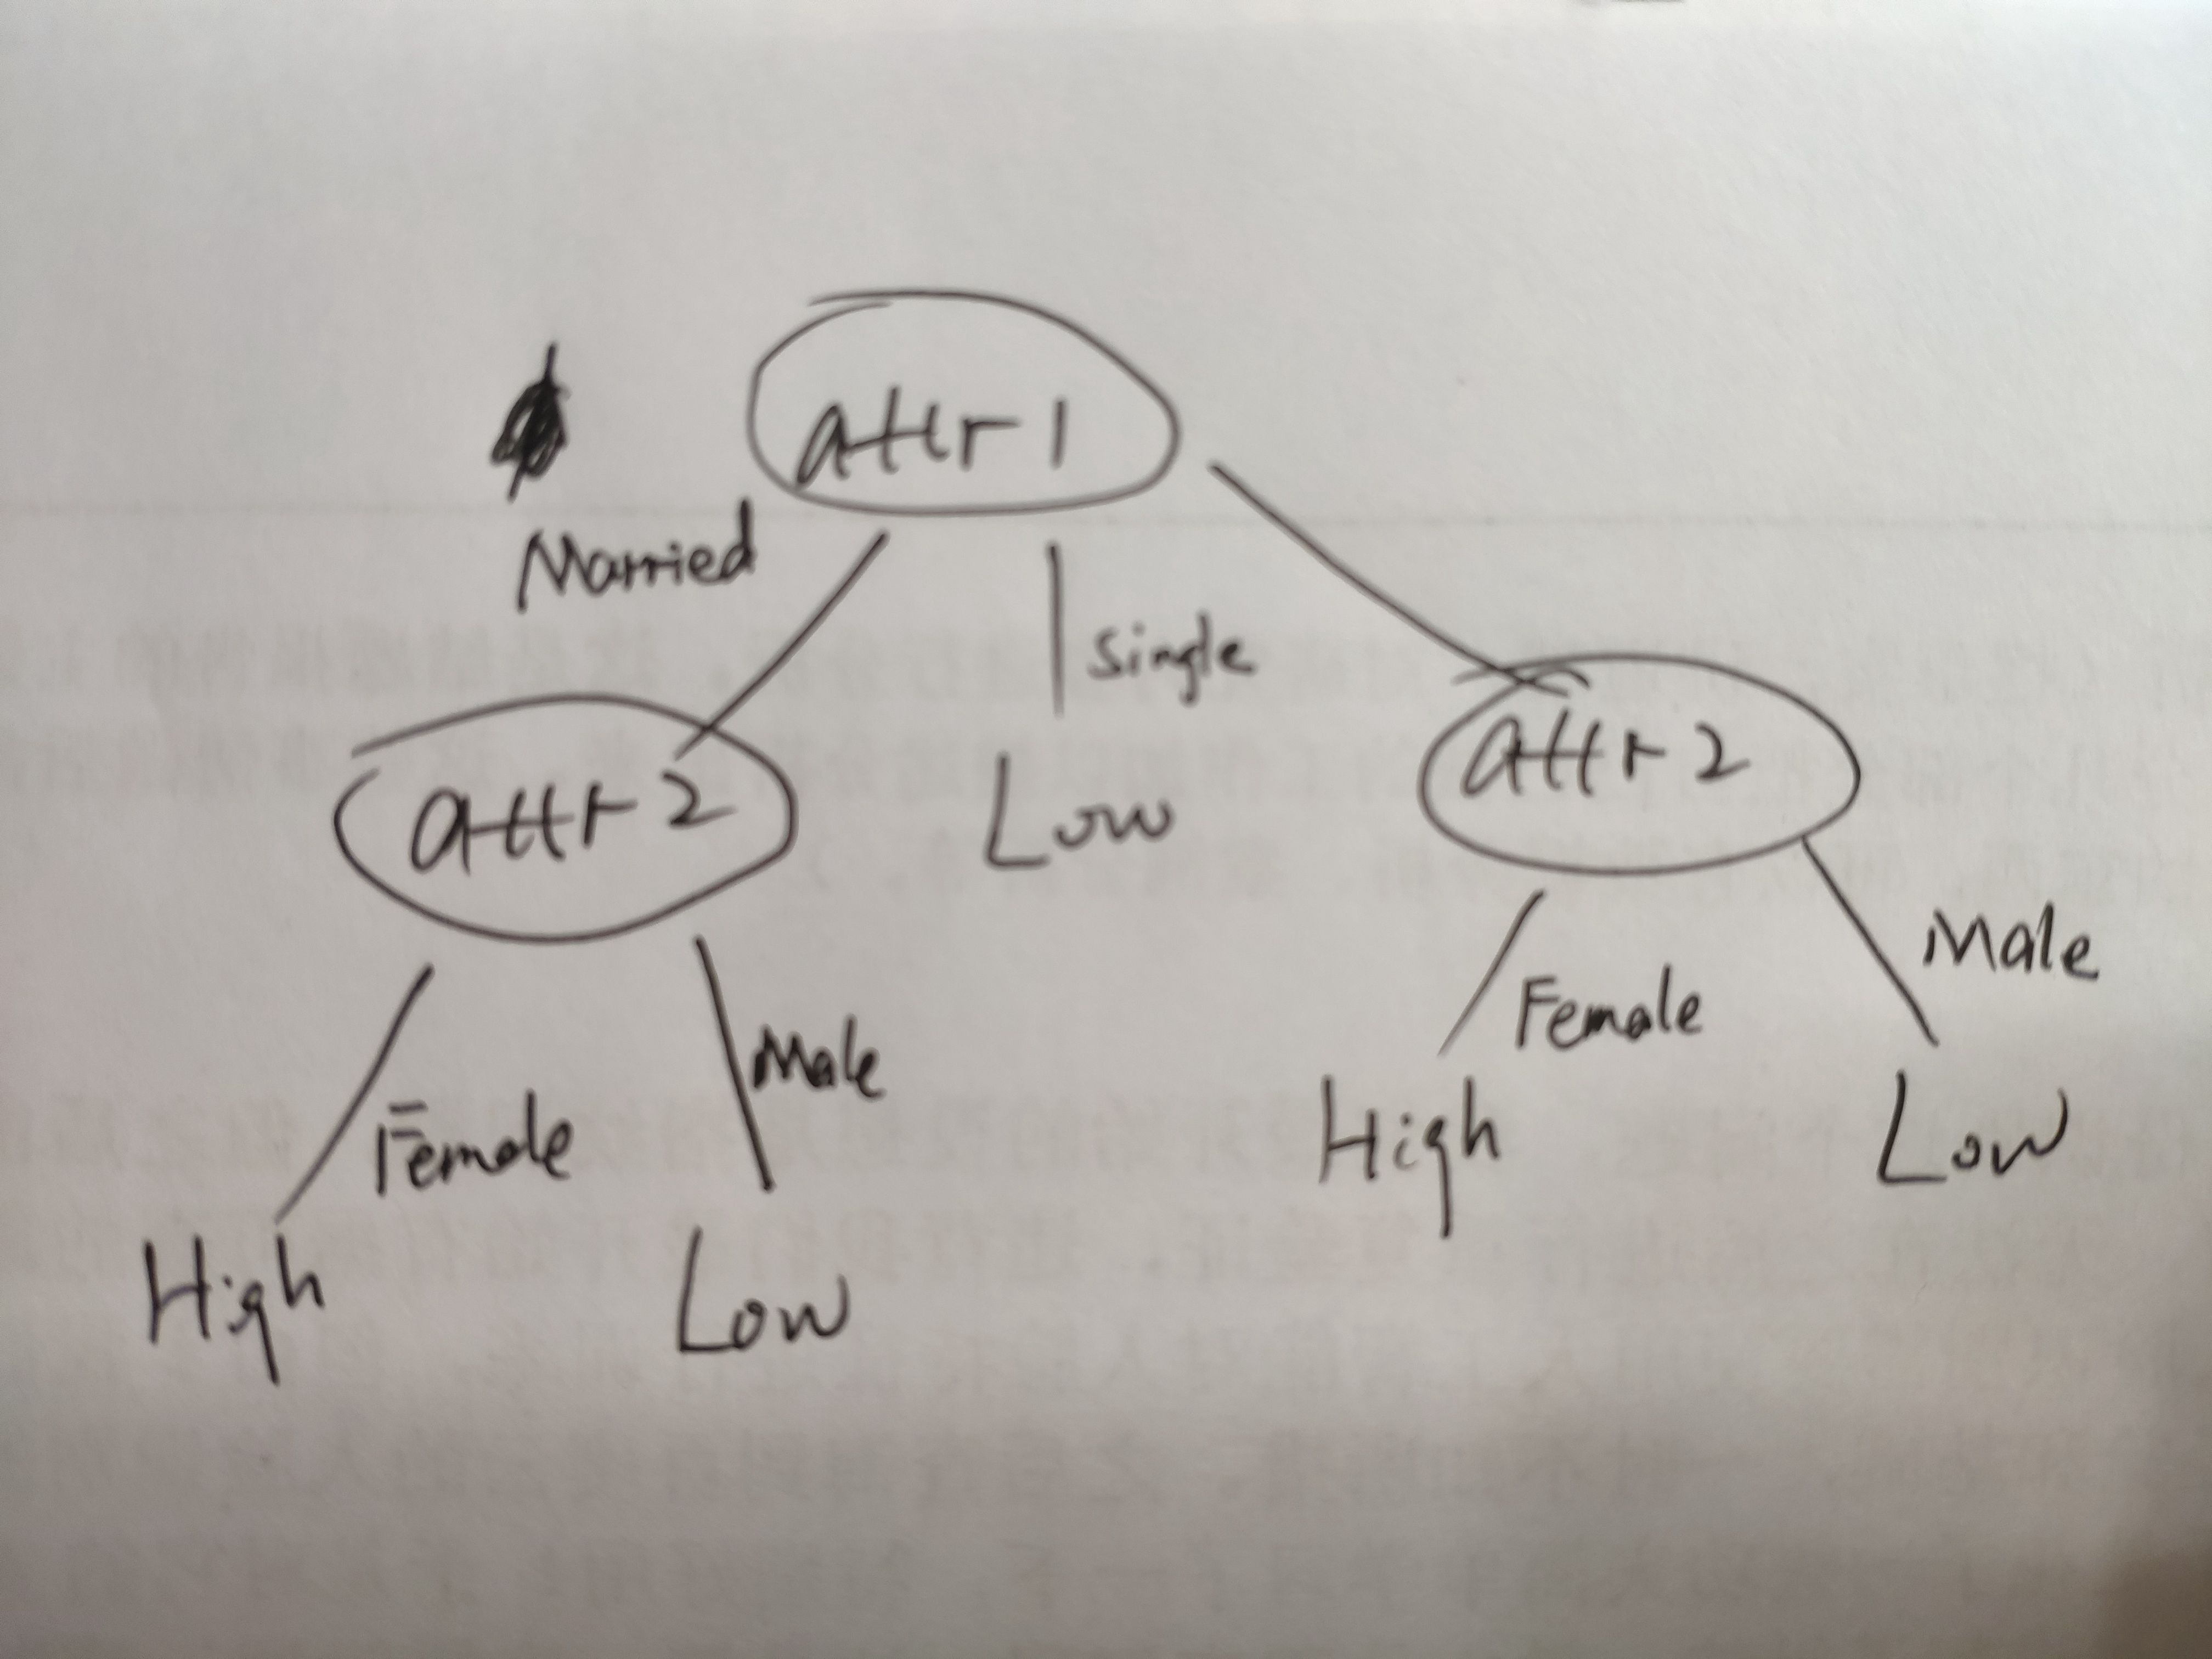 attr 1
Married
Single
attr 2
Low
attr 2
Female
Male
Female
Male
High
Low
High
Low